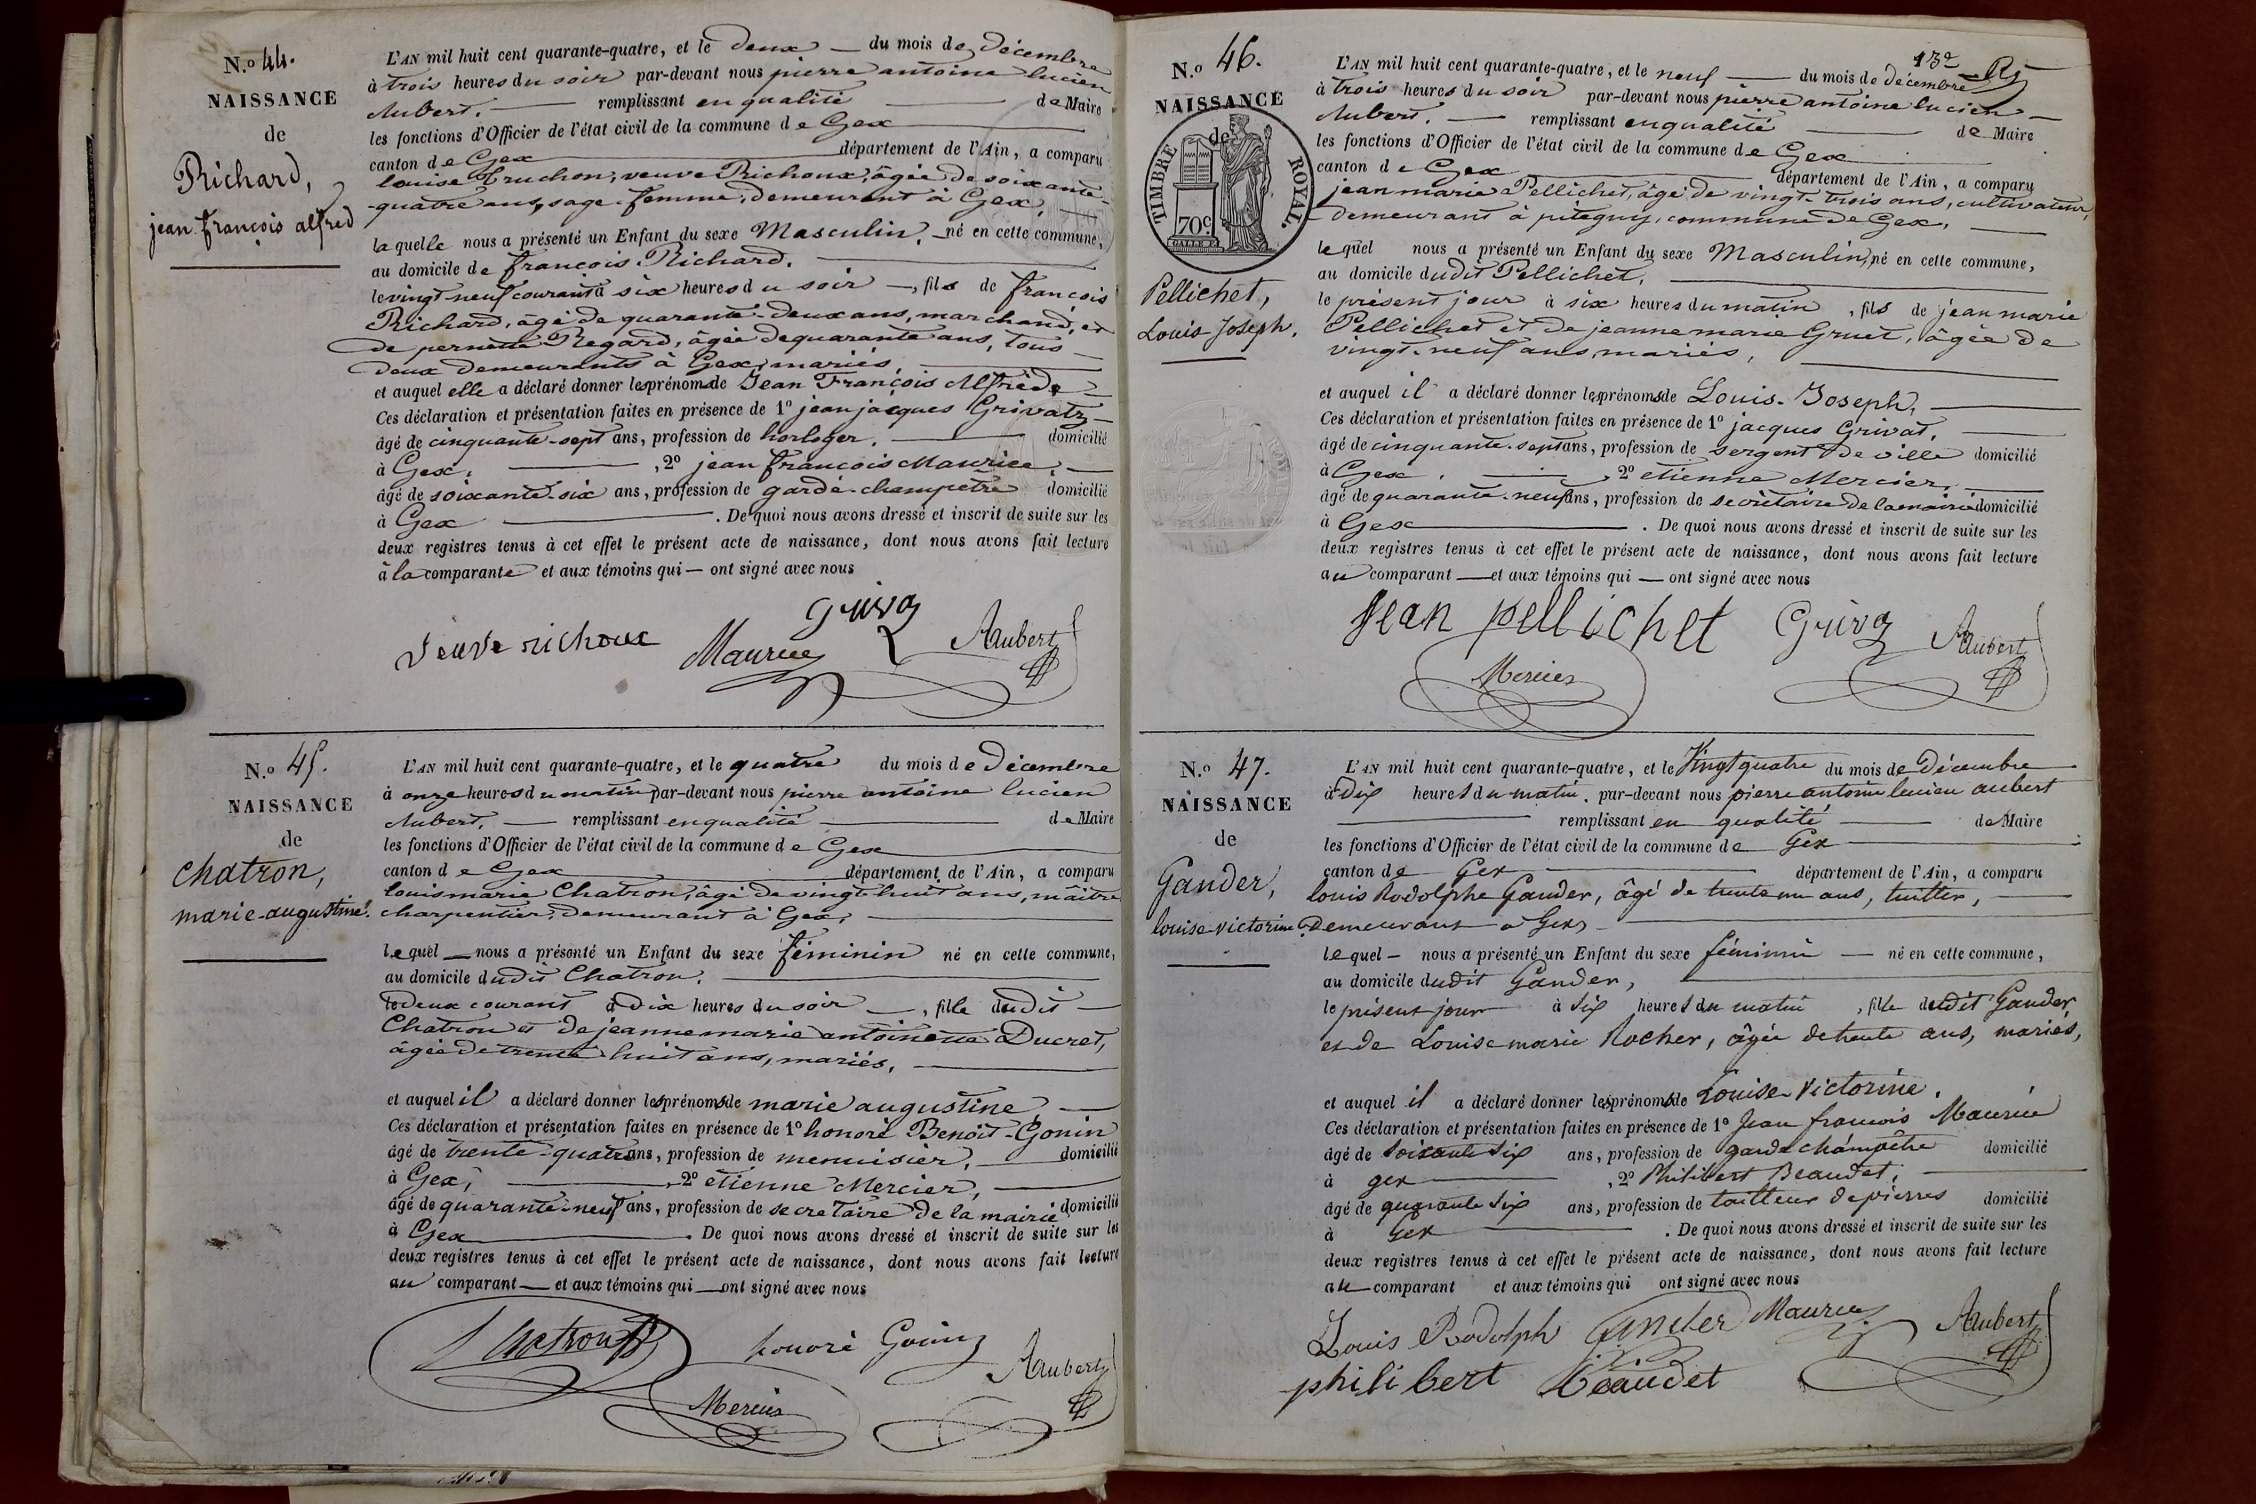 N.o 44.
NAISSANCE
de
Richard,
jean françois alfred
L'AN mil huit cent quarante-quatre, et le deux — du mois de décembre
à trois heures du soir par-devant nous pierre antoine lucien
Aubert. — remplissant en qualité — de Maire
les fonctions d'Officier de l'état civil de la commune de Gex
canton de Gex — département de l'Ain, a comparu
louise Truchon, veuve Richoux, âgée de soixante
-quatre ans, sage-femme, demeurant à Gex, —
laquelle nous a présenté un Enfant du sexe Masculin, né en cette commune,
au domicile de françois Richard. —
le vingt-neuf courant à six heures du soir —, fils de françois
Richard, âgé de quarante-deux ans, marchand, et
de pernette Regard, âgée de quarante ans, tous
deux demeurants à Gex, mariés, —
et auquel elle a déclaré donner les prénoms de Jean François Alfrède
Ces déclaration et présentation faites en présence de 1o jean jacques Grivatz
âgé de cinquante-sept ans, profession de horloger. — domicilié
à Gex. — , 2o jean françois Maurice. —
âgé de soixante-six ans, profession de garde-champetre domicilié
à Gex — . De quoi nous avons dressé et inscrit de suite sur les
deux registres tenus à cet effet le présent acte de naissance, dont nous avons fait lecture
à la comparante et aux témoins qui — ont signé avec nous
veuve richoux Maurice Griva Aubert
N.o 45.
NAISSANCE
de
chatron,
marie-augustine.
L'AN mil huit cent quarante-quatre, et le quatre du mois de Décembre
à onze heures du matin par-devant nous pierre antoine lucien
Aubert, — remplissant en qualité — de Maire
les fonctions d'Officier de l'état civil de la commune de Gex
canton de Gex — département de l'Ain, a comparu
louis marie Chatron, âgé de vingt-huit ans, maître
charpentier, demeurant à Gex, —
lequel — nous a présenté un Enfant du sexe féminin né en cette commune,
au domicile dudit Chatron. —
le deux courant à dix heures du soir —, fille dudit
Chatron et de jeanne marie antoinette Ducret,
âgée de trente-huit ans, mariés. —
et auquel il a déclaré donner les prénoms de marie augustine, —
Ces déclaration et présentation faites en présence de 1o honoré Benoît-Gonin
âgé de trente-quatre ans, profession de menuisier, — domicilié
à Gex, — , 2o etienne Mercier, —
âgé de quarante-neuf ans, profession de secretaire de la mairie, domicilié
à Gex — . De quoi nous avons dressé et inscrit de suite sur les
deux registres tenus à cet effet le présent acte de naissance, dont nous avons fait lecture
au comparant — et aux témoins qui — ont signé avec nous
Chatron honoré Gonin Aubert
Mercier
132
N.o 46.
NAISSANCE
de
TIMBRE ROYAL.
70c
Pellichet,
Louis-Joseph.
L'AN mil huit cent quarante-quatre, et le neuf — du mois de décembre
à trois heures du soir par-devant nous pierre antoine lucien
Aubert. — remplissant en qualité — de Maire
les fonctions d'Officier de l'état civil de la commune de Gex
canton de Gex — département de l'Ain, a comparu
jean marie Pellichet, âgé de vingt-trois ans, cultivateur,
demeurant à pitegny, commune de Gex, —
lequel nous a présenté un Enfant du sexe Masculin, né en cette commune,
au domicile dudit Pellichet, —
le présent jour à six heures du matin, fils de jean marie
Pellichet et de jeanne marie Gruet, âgée de
vingt-neuf ans, mariés, —
et auquel il a déclaré donner les prénoms de Louis-Joseph, —
Ces déclaration et présentation faites en présence de 1o jacques Grivat, —
âgé de cinquante-sept ans, profession de sergent de ville domicilié
à Gex. — 2o etienne Mercier, —
âgé de quarante-neuf ans, profession de secrétaire de la mairie domicilié
à Gex — . De quoi nous avons dressé et inscrit de suite sur les
deux registres tenus à cet effet le présent acte de naissance, dont nous avons fait lecture
au comparant — et aux témoins qui — ont signé avec nous
Jean pellichet Griva Aubert
Mercier
N.o 47.
NAISSANCE
de
Gander,
louise-victorine.
L'AN mil huit cent quarante-quatre, et le Vingt quatre du mois de Décembre
à Dix heures du matin, par-devant nous pierre antoine lucien aubert
— remplissant en qualité — de Maire
les fonctions d'Officier de l'état civil de la commune de Gex —
canton de Gex — département de l'Ain, a comparu
louis Rodolphe Gander, âgé de trente un ans, —
Demeurant à Gex, —
lequel — nous a présenté un Enfant du sexe féminin — né en cette commune,
au domicile dudit Gander, —
le présent jour à six heures du matin, fille dudit Gander,
et de Louise marie Rocher, âgée de trente ans, mariés,
et auquel il a déclaré donner les prénoms de Louise-Victorine.
Ces déclaration et présentation faites en présence de 1o Jean françois Maurice
âgé de soixante six ans, profession de garde champêtre domicilié
à gex — , 2o Philibert Beaudet, —
âgé de quarante six ans, profession de tailleur de pierres domicilié
à Gex — . De quoi nous avons dressé et inscrit de suite sur les
deux registres tenus à cet effet le présent acte de naissance, dont nous avons fait lecture
au comparant et aux témoins qui ont signé avec nous
Louis Rodolph Gander Maurice Aubert
philibert Beaudet